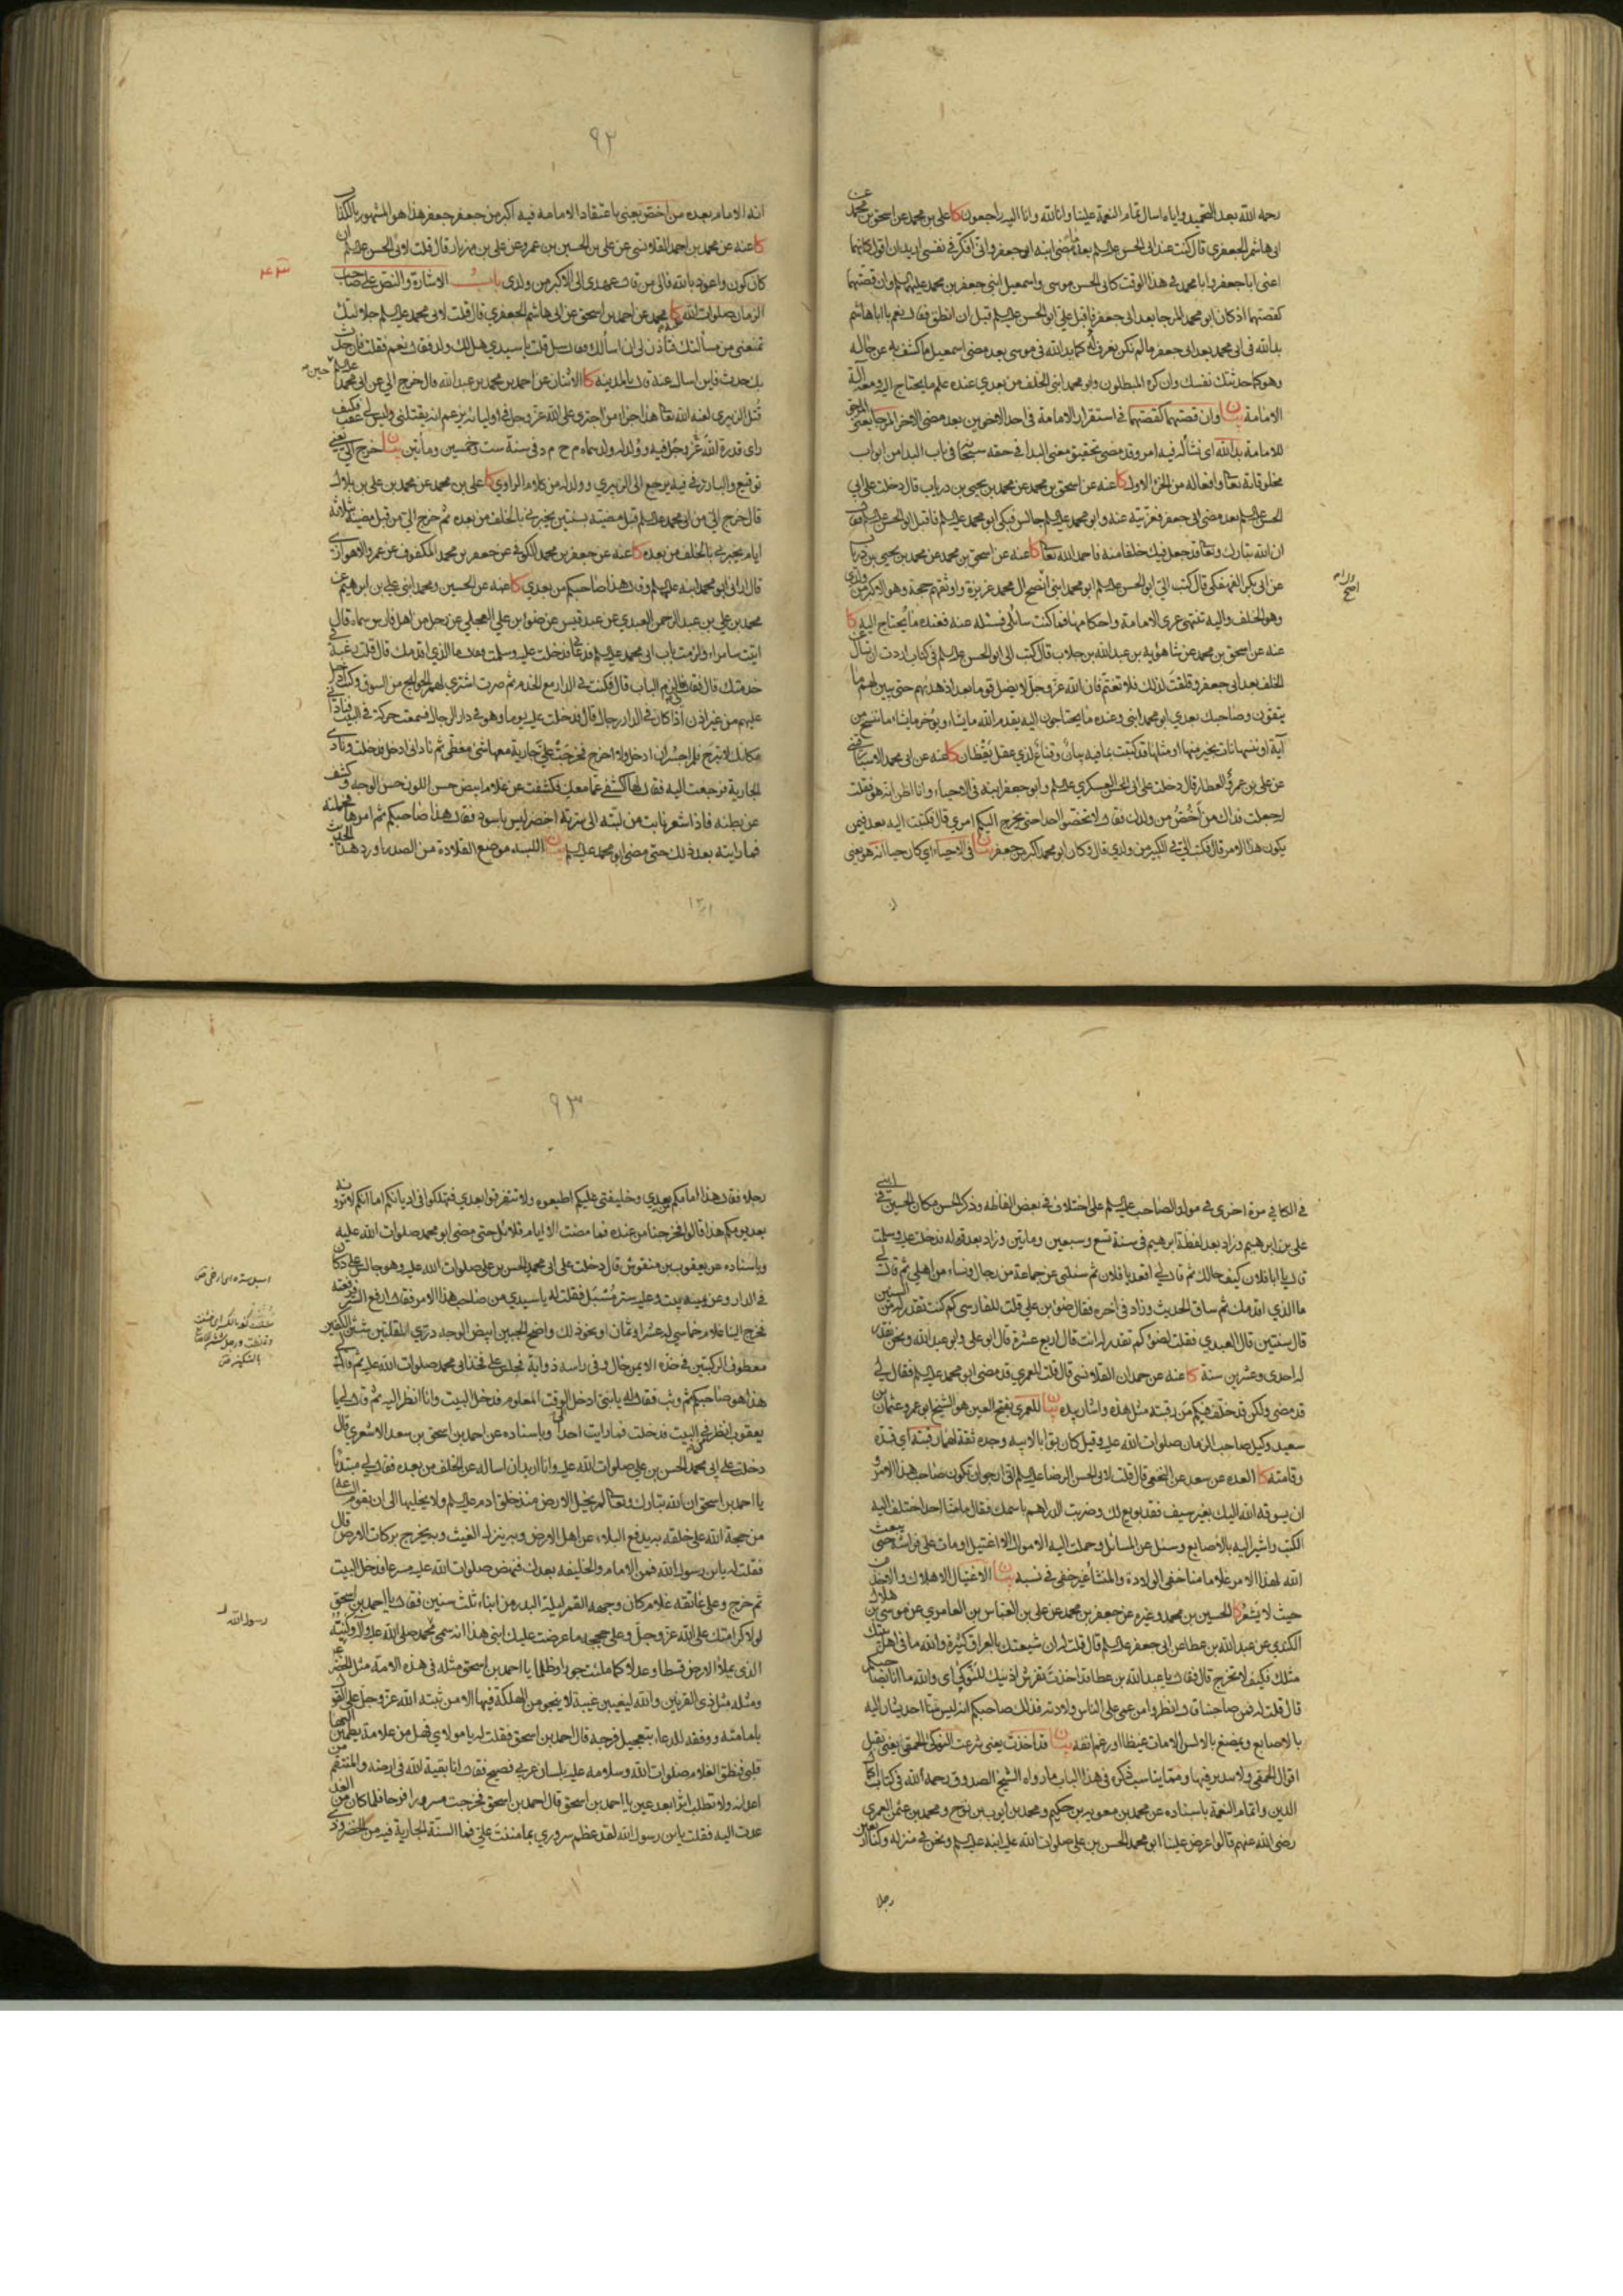 رحمه الله بعد التحميد واياه اسال تمام النعمة علينا وانا لله وانا اليه راجعون كا علي بن محمد عن اسحق بن محمد عن
ابي هاشم الجعفري قال كنت عند ابي الحسن عليه السلم بعد ما مضى ابنه ابو جعفر واني افكر في نفسي اريد ان اقول كانهما
اعنى ابا جعفر وابا محمد في هذا الوقت كابي الحسن موسى واسمعيل ابني جعفر بن محمد عليهم السلم وان قصتهما
كقصتهما اذ كان ابو محمد المرجا بعد ابي جعفر فاقبل علي ابو الحسن عليه السلم قبل ان انطق فقال نعم يا ابا هاشم
بدا لله في ابي محمد بعد ابي جعفر ما لم تكن يعرف له كما بدا لله في موسى بعد مضى اسمعيل ما كشف به عن حاله
وهو كما حدثتك نفسك وان كره المبطلون وابو محمد ابني الخلف من بعدي عنده علم ما يحتاج اليه ومعه آلة
الامامة بيان وان قصتهما كقصتهما في استقرار الامامة في احد الاخوين بعد مضى الاخر المرجا يعنى المرجى
للامامة بدا لله اي نشأ له فيه امر وقد مضى تحقيق معنى البدا في حقه سبحانه في باب البدا من ابواب
مخلوقاته تعالى وافعاله من الجزء الاول كا عنه عن اسحق بن محمد عن محمد بن يحيى بن درياب قال دخلت على ابي
الحسن عليه السلم بعد مضى ابي جعفر فعزيته عنه وابو محمد عليه السلم جالس فبكى ابو محمد عليه السلم فاقبل ابو الحسن عليه السلم فقال
ان الله تبارك وتعالى قد جعل فيك خلفا منه فاحمد الله تعالى كا عنه عن اسحق بن محمد عن محمد بن يحيى بن درياب
عن ابي بكر الفهفكي قال كتب الي ابو الحسن عليه السلم ابو محمد ابني انصح ال محمد غريزة واوثقهم حجة وهو الاكبر من ولدي
وهو الخلف واليه تنتهى عرى الامامة واحكامها فما كنت سائلي فسئله عنه فعنده ما يحتاج اليه كا
عنه عن اسحق بن محمد عن شاهويه بن عبد الله بن جلاب قال كتب الي ابو الحسن عليه السلم في كتاب اردت ان تسأل عن
الخلف بعد ابي جعفر وقلقت لذلك فلا تغتم فان الله عز وجل لا يضل قوما بعد اذ هديهم حتى يبين لهم ما
يتقون وصاحبك بعدي ابو محمد ابني وعنده ما يحتاجون اليه يقدم الله ما يشاء ويؤخر ما يشاء ما ننسخ من
آية او ننسها نات بخير منها او مثلها قد كتبت بما فيه بيان وقناع لذي عقل يقظان كا عنه عن ابي محمد الاسبارقيني
عن علي بن عمرو العطار قال دخلت على ابي الحسن العسكري عليه السلم وابو جعفر ابنه في الاحياء وانا اظن انه هو فقلت
له جعلت فداك من اخص من ولدك فقال لا تخصوا احدا حتى يخرج اليكم امري قال فكتبت اليه بعد فيمن
يكون هذا الامر قال فكتب الي في الكبير من ولدي قال وكان ابو محمد اكبر من جعفر بيان في الاحياء اي كان حيا انه هو يعنى
اصح
٩٢
انه الامام بعده من اخص يعنى باعتقاد الامامه فيه اكبر من جعفر جعفر هذا هو المشهور بالكذاب
كا عنه عن محمد بن احمد القلانسي عن علي بن الحسين بن عمرو عن علي بن مهزيار قال قلت لابي الحسن عليه السلم ان
كان كون واعوذ بالله فالى من قال عهدي الى الاكبر من ولدي باب الاشارة والنص على صاحب
الزمان صلوات الله عليه كا محمد عن احمد بن اسحق عن ابي هاشم الجعفري قال قلت لابي محمد عليه السلم جلالتك
تمنعني من مسألتك فتأذن لي ان اسألك فقال سل قلت يا سيدي هل لك ولد فقال نعم فقلت فان حدث
بك حدث فاين اسال عنه قال بالمدينة كا الاثنان عن احمد بن محمد بن عبد الله قال خرج الي عن ابي محمد عليه السلم حين
قتل الزبيري لعنه الله تعالى هذا جزاء من اجترى على الله عز وجل في اوليائه يزعم انه يقتلني وليس لي عقب فكيف
راى قدرة الله عز وجل فيه وولد له ولد سماه م ح م د في سنة ست وخمسين ومأتين بيان خرج الي يعني
توقيع والبارز في فيه يرجع الى الزبيري وولد له من كلام الراوي كا علي بن محمد عن محمد بن علي بن بلال
قال خرج الي من ابي محمد عليه السلم قبل مضيه بسنتين يخبرني بالخلف من بعده ثم خرج الي من قبل مضيه بثلاثة
ايام يخبرني بالخلف من بعده كا عنه عن جعفر بن محمد الكوفي عن جعفر بن محمد المكفوف عن عمرو الاهوازي
قال اراني ابو محمد ابنه عليه السلم وقال هذا صاحبكم من بعدي كا عنه عن الحسين ومحمد ابني علي بن ابرهيم عن
محمد بن علي بن عبد الرحمن العبدي عن عبد قيس عن ضوء بن علي العجلي عن رجل من اهل فارس سماه قال
اتيت سامراء ولزمت باب ابي محمد عليه السلم فدعاني فدخلت عليه وسلمت فقال ما الذي اقدمك قال قلت رغبة في
خدمتك قال فقال فالزم الباب قال فكنت في الدار مع الخدم ثم صرت اشتري لهم الحوايج من السوق وكنت ادخل
عليهم من غير اذن اذا كان في الدار رجال قال فدخلت عليه يوما وهو في دار الرجال فسمعت حركة في البيت فناداني
مكانك لا تبرح فلم اجسر ان ادخل ولا اخرج فخرجت علي جارية معها شئ مغطى ثم ناداني ادخل فدخلت ونادى
الجارية فرجعت اليه فقال لها اكشفي عما معك فكشفت عن غلام ابيض حسن اللون حسن الوجه وكشف
عن بطنه فاذا شعر نابت من لبته الى سرته اخضر ليس باسود فقال هذا صاحبكم ثم امرها فحملته
فما رايته بعد ذلك حتى مضى ابو محمد عليه السلم بيان اللبه موضع القلادة من الصدر اورد هذا الحديث
في الكافي مرة اخرى في مولد الصاحب عليه السلم على اختلاف في بعض الفاظه وذكر الحسن مكان الحسين في ابني
علي بن ابرهيم وزاد بعد لفظة ابرهيم في سنة تسع وسبعين ومايتين وزاد بعد قوله فدخلت عليه وسلمت
قال يا ابا فلان كيف حالك ثم قال لي اقعد يا فلان ثم سئلني عن جماعة من رجال ونساء من اهلي ثم قال لي
ما الذي اقدمك ثم ساق الحديث وزاد في اخره فقال ضوء بن علي قلت للفارسي كم كنت تقدر له من السنين
قال سنتين قال العبدي فقلت لضوء كم تقدر له انت قال اربع عشرة قال ابو علي وابو عبد الله ونحن نقدر
له احدى وعشرين سنة كا عنه عن حمدان القلانسي قال قلت للعمري قد مضى ابو محمد عليه السلم فقال لي
قد مضى ولكن قد خلف فيكم من رقبته مثل هذه واشار بيده بيان العمري بفتح العين هو الشيخ ابو عمرو عثمان بن
سعيد وكيل صاحب الزمان صلوات الله عليه وقيل كان بوابا لابيه وجده ثقة لهما رقبته اي قده
وقامته كا العده عن سعد عن النخعي قال قلت لابي الحسن الرضا عليه السلم اني ارجو ان تكون صاحب هذا الامر و
ان يسوقه الله اليك بغير سيف فقد بويع لك وضربت الدراهم باسمك فقال ما منا احد اختلف اليه
الكتب واشير اليه بالاصابع وسئل عن المسائل وحملت اليه الاموال الا اغتيل او مات على فراشه حتى يبعث
الله لهذا الامر غلاما منا خفي الولادة والمنشأ غير خفي في نسبه بيان الاغتيال الاهلاك والاخذ من
حيث لا يشعر كا الحسين بن محمد وغيره عن جعفر بن محمد عن علي بن العباس بن العامري عن موسى بن هلال
الكندي عن عبد الله بن عطا عن ابي جعفر عليه السلم قال قلت له ان شيعتك بالعراق كثيرة والله ما في اهل بيتك
مثلك فكيف لا تخرج قال فقال يا عبد الله بن عطا قد اخذت تفرش اذنيك للنوكى اي والله ما انا بصاحبكم
قال قلت له فمن صاحبنا قال انظروا من عمي على الناس ولادته فذلك صاحبكم انه ليس منا احد يشار اليه
بالاصابع ويمضغ بالالسن الا مات غيظا او رغم انفه بيان قد اخذت يعنى شرعت النوكى الحمقى يعني تقبل
اقوال الحمقى ولا تدبر فيها ومما يناسب ذكره في هذا الباب ما رواه الشيخ الصدوق رحمه الله في كتاب اكمال
الدين واتمام النعمة باسناده عن محمد بن معويه بن حكيم ومحمد بن ايوب بن نوح ومحمد بن عثمن العمري
رضى الله عنهم قالوا عرض علينا ابو محمد الحسن بن علي صلوات الله عليه ابنه عليه السلم ونحن في منزله وكنا اربعين
رجلا
٩٣
رجلا فقال هذا امامكم بعدي وخليفتي عليكم اطيعوه ولا تتفرقوا بعدي فتهلكوا في اديانكم اما انكم لا ترونه
بعد يومكم هذا قالوا فخرجنا من عنده فما مضت الا ايام قلائل حتى مضى ابو محمد صلوات الله عليه
وباسناده عن يعقوب بن منقوش قال دخلت على ابي محمد الحسن بن علي صلوات الله عليه وهو جالس على دكان
في الدار وعن يمينه بيت وعليه ستر مسبل فقلت له يا سيدي من صاحب هذا الامر فقال ارفع الستر فرفعته
فخرج الينا غلام خماسي له عشر او ثمان او نحو ذلك واضح الجبين ابيض الوجه دري المقلتين شثن الكفين
معطوف الركبتين في خده الايمن خال وفي راسه ذوابة فجلس على فخذ ابي محمد صلوات الله عليه ثم قال لي
هذا هو صاحبكم ثم وثب فقال له يا بني ادخل الى الوقت المعلوم فدخل البيت وانا انظر اليه ثم قال لي يا
يعقوب انظر في البيت فدخلت فما رايت احدا وباسناده عن احمد بن اسحق بن سعد الاشعري قال
دخلت على ابي محمد الحسن بن علي صلوات الله عليه وانا اريد ان اساله عن الخلف من بعده فقال لي مبتدئا
يا احمد بن اسحق ان الله تبارك وتعالى لم يخل الارض منذ خلق ادم عليه السلم ولا يخليها الى ان تقوم الساعة
من حجة الله على خلقه به يدفع البلاء عن اهل الارض وبه ينزل الغيث وبه يخرج بركات الارض قال
فقلت له يا بن رسول الله فمن الامام والخليفه بعدك فنهض صلوات الله عليه مسرعا فدخل البيت
ثم خرج وعلى عاتقه غلام كان وجهه القمر ليلة البدر من ابناء ثلث سنين فقال يا احمد بن اسحق
لولا كرامتك على الله عز وجل وعلى حججه ما عرضت عليك ابني هذا انه سمي محمد صلى الله عليه وآله وكنيته
الذي يملأ الارض قسطا وعدلا كما ملئت جورا وظلما يا احمد بن اسحق مثله في هذه الامة مثل الخضر
ومثله مثل ذي القرنين والله ليغيبن غيبة لا ينجو من الهلكة فيها الا من ثبته الله عز وجل على القول
بامامته ووفقه للدعاء بتعجيل فرجه قال احمد بن اسحق فقلت له يا مولاي فهل من علامة يطمئن اليها
قلبي فنطق الغلام صلوات الله وسلامه عليه بلسان عربي فصيح فقال انا بقية الله في ارضه والمنتقم من
اعدائه ولا تطلب اثرا بعد عين يا احمد بن اسحق قال احمد بن اسحق فخرجت مسرورا فرحا فلما كان من الغد
عدت اليه فقلت يا بن رسول الله لقد عظم سروري بما مننت علي فما السنة الجارية فيه من الخضر وذي
رسول الله